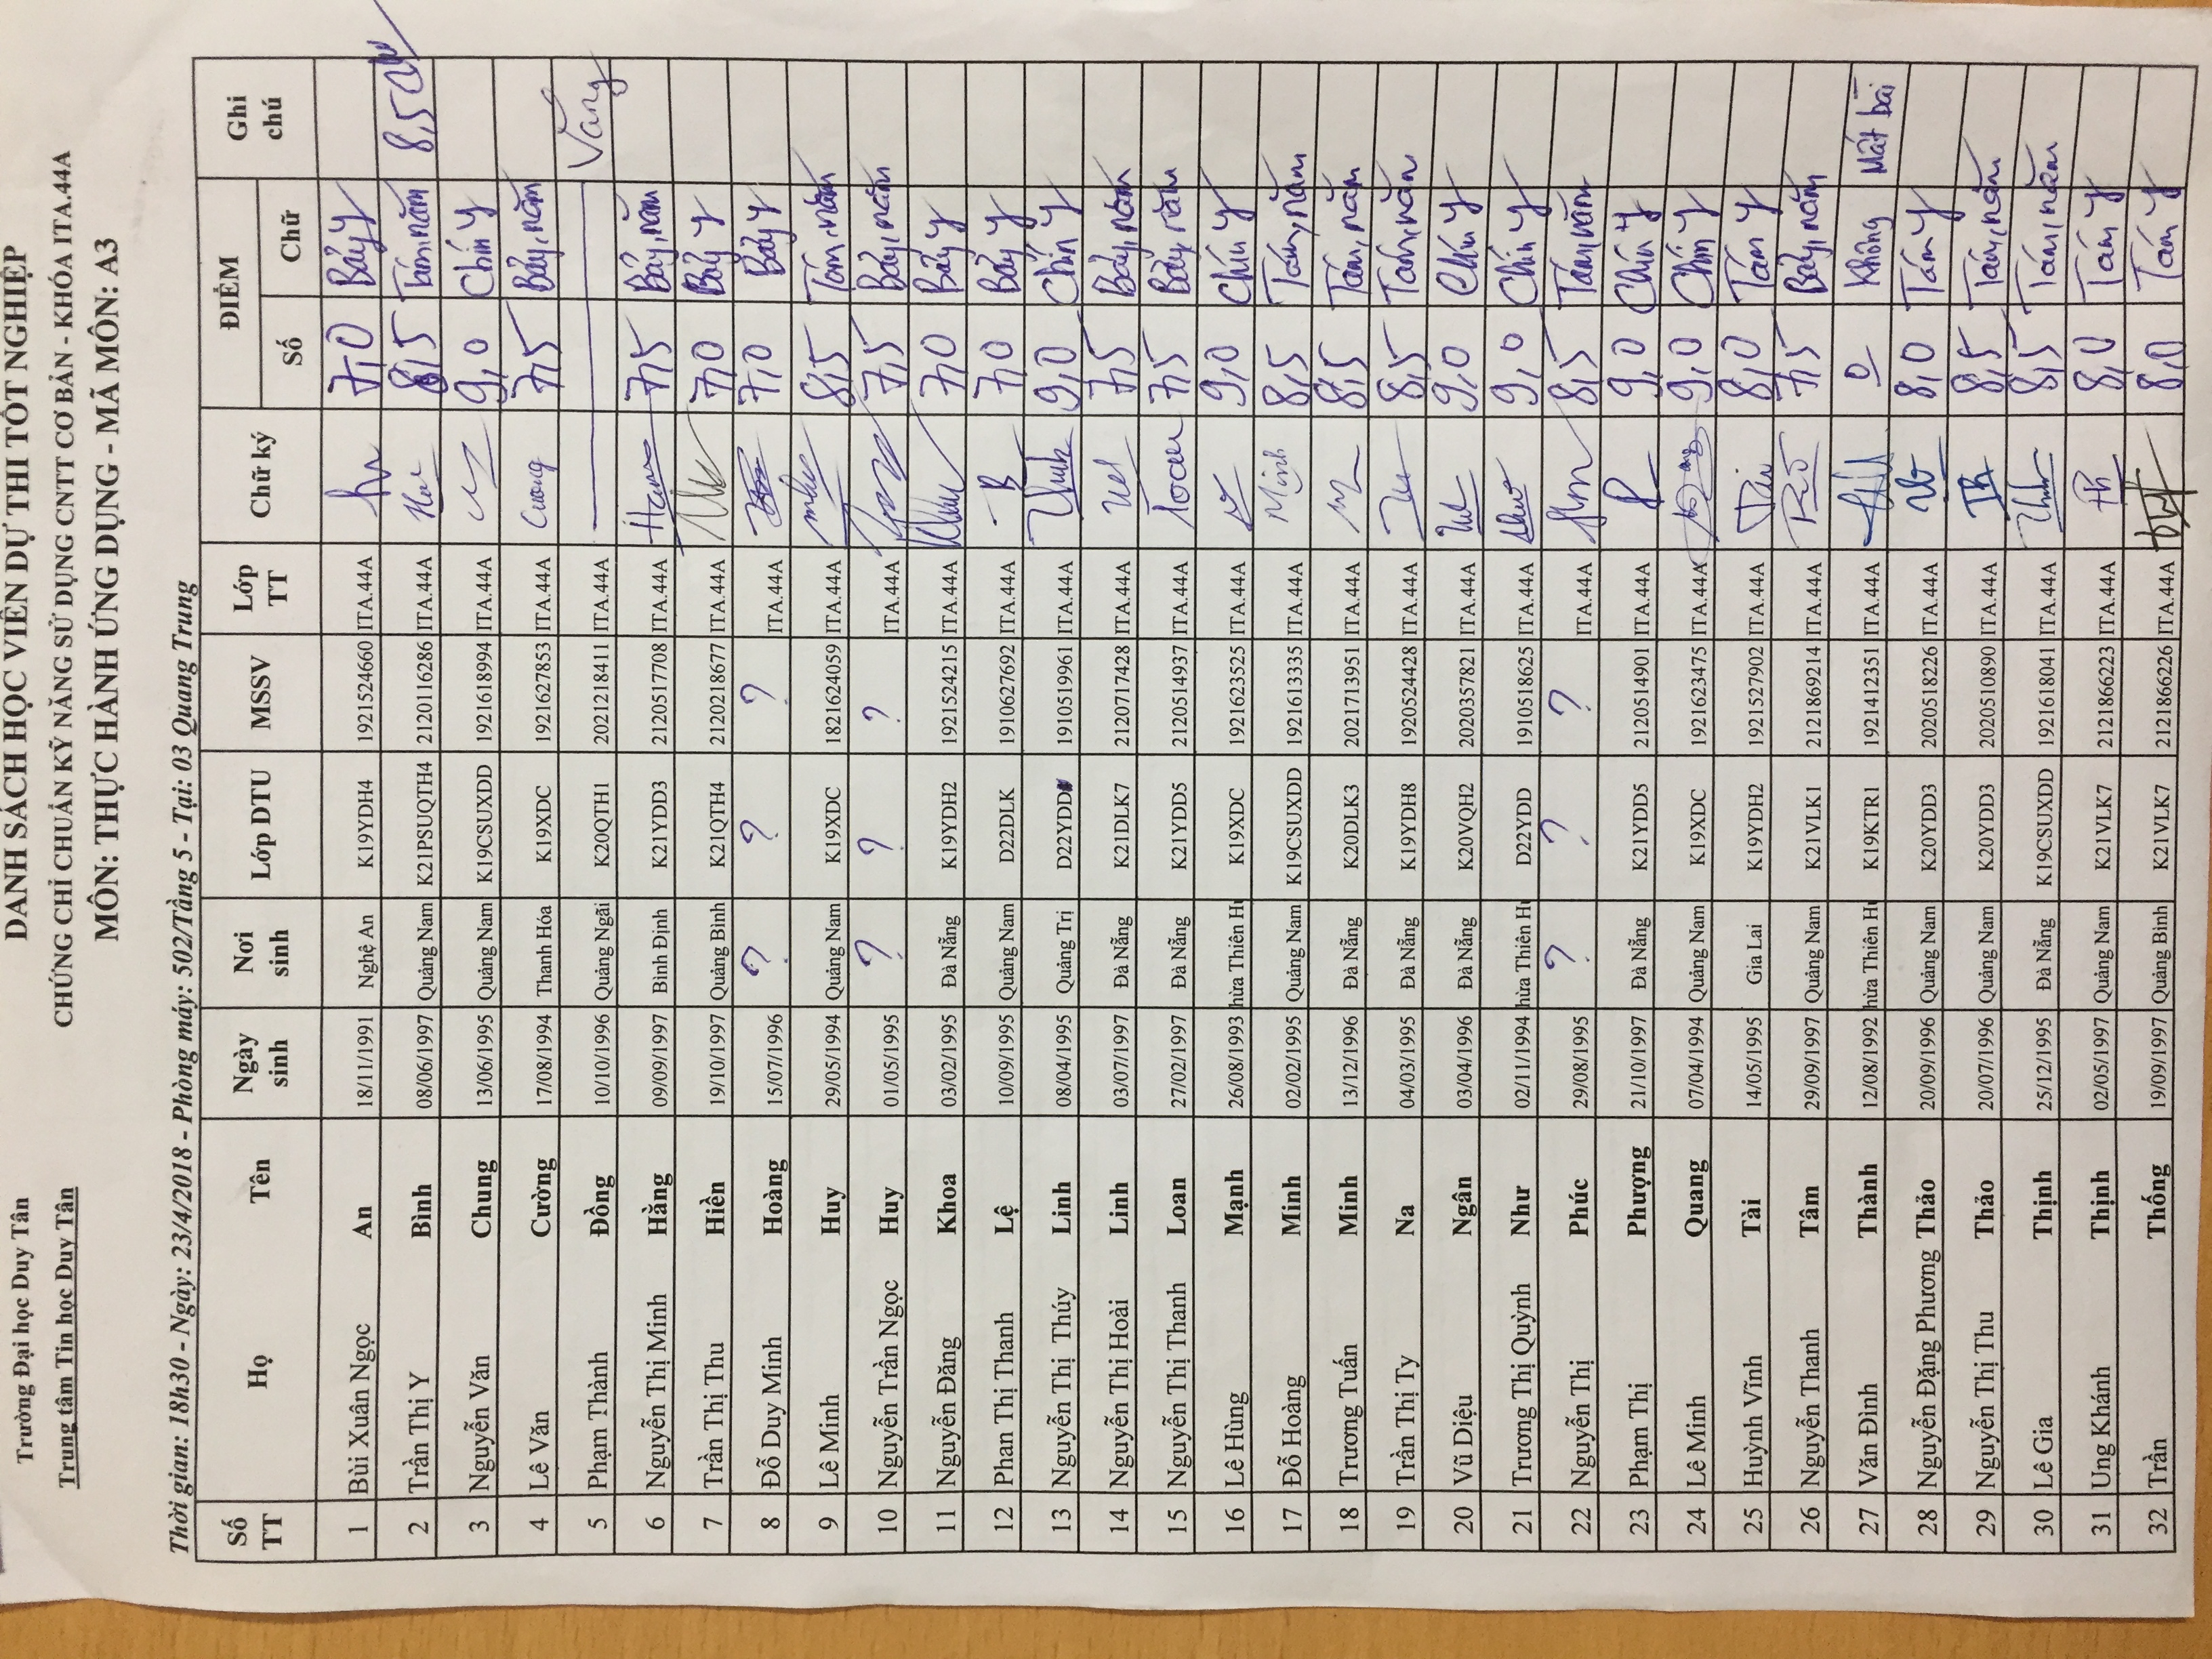 Trường Đại học Duy Tân
Trung tâm Tin học Duy Tân
DANH SÁCH HỌC VIÊN DỰ THI TỐT NGHIỆP
CHỨNG CHỈ CHUẨN KỸ NĂNG SỬ DỤNG CNTT CƠ BẢN - KHÓA ITA.44A
MÔN: THỰC HÀNH ỨNG DỤNG - MÃ MÔN: A3
Thời gian: 18h30 - Ngày: 23/4/2018 - Phòng máy: 502/Tầng 5 - Tại: 03 Quang Trung
Số TT Họ Tên Ngày sinh Nơi sinh Lớp DTU MSSV Lớp TT Chữ ký ĐIỂM Số Chữ Ghi chú
1 Bùi Xuân Ngọc An 18/11/1991 Nghệ An K19YDH4 1921524660 ITA.44A 7,0 Bảy
2 Trần Thị Y Bình 08/06/1997 Quảng Nam K21PSUQTH4 2120116286 ITA.44A 8,5 Tám,năm 8,5
3 Nguyễn Văn Chung 13/06/1995 Quảng Nam K19CSUXDD 1921618994 ITA.44A 9,0 Chín
4 Lê Văn Cường 17/08/1994 Thanh Hóa K19XDC 1921627853 ITA.44A Cương 7,5 Bảy,năm
5 Phạm Thành Đồng 10/10/1996 Quảng Ngãi K20QTH1 2021218411 ITA.44A Vắng
6 Nguyễn Thị Minh Hằng 09/09/1997 Bình Định K21YDD3 2120517708 ITA.44A 7,5 Bảy,năm
7 Trần Thị Thu Hiền 19/10/1997 Quảng Bình K21QTH4 2120218677 ITA.44A 7,0 Bảy
8 Đỗ Duy Minh Hoàng 15/07/1996 ? ? ? ITA.44A 7,0 Bảy
9 Lê Minh Huy 29/05/1994 Quảng Nam K19XDC 1821624059 ITA.44A 8,5 Tám,năm
10 Nguyễn Trần Ngọc Huy 01/05/1995 ? ? ? ITA.44A 7,5 Bảy,năm
11 Nguyễn Đăng Khoa 03/02/1995 Đà Nẵng K19YDH2 1921524215 ITA.44A 7,0 Bảy
12 Phan Thị Thanh Lệ 10/09/1995 Quảng Nam D22DLK 1910627692 ITA.44A 7,0 Bảy
13 Nguyễn Thị Thúy Linh 08/04/1995 Quảng Trị D22YDD 1910519961 ITA.44A 9,0 Chín
14 Nguyễn Thị Hoài Linh 03/07/1997 Đà Nẵng K21DLK7 2120717428 ITA.44A 7,5 Bảy,năm
15 Nguyễn Thị Thanh Loan 27/02/1997 Đà Nẵng K21YDD5 2120514937 ITA.44A 7,5 Bảy,năm
16 Lê Hùng Mạnh 26/08/1993 hừa Thiên Hu K19XDC 1921623525 ITA.44A 9,0 Chín
17 Đỗ Hoàng Minh 02/02/1995 Quảng Nam K19CSUXDD 1921613335 ITA.44A Minh 8,5 Tám,năm
18 Trương Tuấn Minh 13/12/1996 Đà Nẵng K20DLK3 2021713951 ITA.44A 8,5 Tám,năm
19 Trần Thị Ty Na 04/03/1995 Đà Nẵng K19YDH8 1920524428 ITA.44A 8,5 Tám,năm
20 Vũ Diệu Ngân 03/04/1996 Đà Nẵng K20VQH2 2020357821 ITA.44A 9,0 Chín
21 Trương Thị Quỳnh Như 02/11/1994 hừa Thiên Hu D22YDD 1910518625 ITA.44A 9,0 Chín
22 Nguyễn Thị Phúc 29/08/1995 ? ? ? ITA.44A 8,5 Tám,năm
23 Phạm Thị Phượng 21/10/1997 Đà Nẵng K21YDD5 2120514901 ITA.44A 9,0 Chín
24 Lê Minh Quang 07/04/1994 Quảng Nam K19XDC 1921623475 ITA.44A 9,0 Chín
25 Huỳnh Vĩnh Tài 14/05/1995 Gia Lai K19YDH2 1921527902 ITA.44A Tài 8,0 Tám
26 Nguyễn Thanh Tâm 29/09/1997 Quảng Nam K21VLK1 2121869214 ITA.44A 7,5 Bảy,năm
27 Văn Đình Thành 12/08/1992 hừa Thiên Hu K19KTR1 1921412351 ITA.44A 0 Không Mất bài
28 Nguyễn Đặng Phương Thảo 20/09/1996 Quảng Nam K20YDD3 2020518226 ITA.44A 8,0 Tám
29 Nguyễn Thị Thu Thảo 20/07/1996 Quảng Nam K20YDD3 2020510890 ITA.44A 8,5 Tám,năm
30 Lê Gia Thịnh 25/12/1995 Đà Nẵng K19CSUXDD 1921618041 ITA.44A 8,5 Tám,năm
31 Ung Khánh Thịnh 02/05/1997 Quảng Nam K21VLK7 2121866223 ITA.44A 8,0 Tám
32 Trần Thống 19/09/1997 Quảng Bình K21VLK7 2121866226 ITA.44A 8,0 Tám